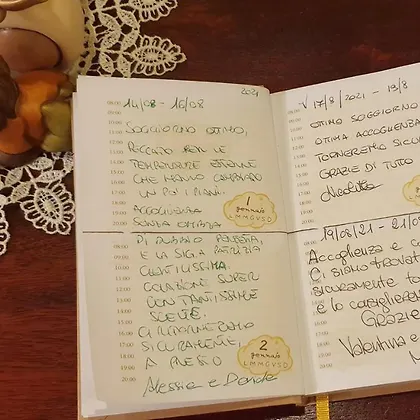 2021
14/08 - 16/08
SOGGIORNO OTTIMO,
PECCATO PER LE
TEMPERATURE ESTERNE
CHE HANNO CAMBIATO
UN PO' I PIANI.
ACCOGLIENZA
SENZA OMBRA
1
gennaio
L M M G V S D
DI DUBBIO PERFETTA,
E LA SIG.A PATRIZIA
GENTILISSIMA.
COLAZIONE SUPER
CON TANTISSIME
SCELTE.
CI RITORNEREMO
SICURAMENTE.
A PRESTO
Alessia e Davide
2
gennaio
L M M G V S D
17/8/2021 - 19/8
OTTIMO SOGGIORNO
OTTIMA ACCOGLIENZA
TORNEREMO SICU
GRAZIE DI TUTTO
19/08/21 - 21/0
Accoglienza e
Ci siamo trovat
sicuramente to
e lo
Grazie
Valentina e